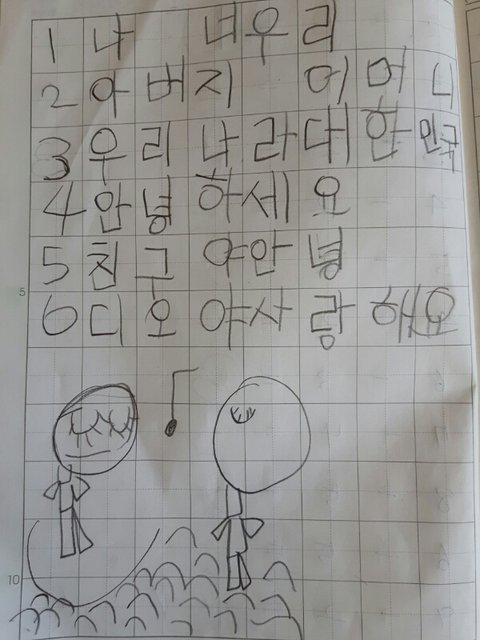 1 나 너우리
2 아버지 어머니
3 우리 나라대한민국
4 안녕 하세요
5 친구 야안녕
6 디오 야사랑해요
5
10